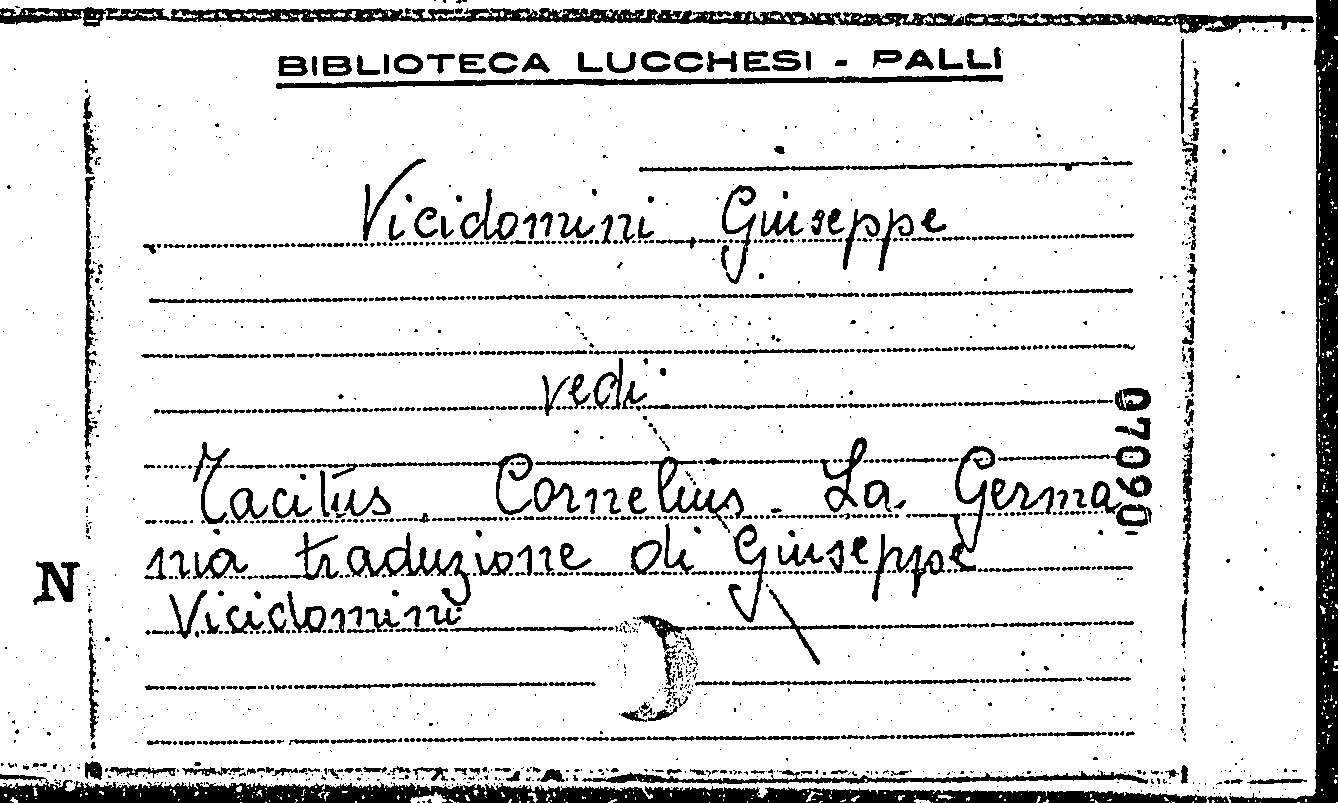 BIBLIOTECA LUCCHESI - PALLI
Vicidomini, Giuseppe
vedi
Tacitus, Cornelius. La Germa
nia traduzione di Giuseppe
Vicidomini
N
07090